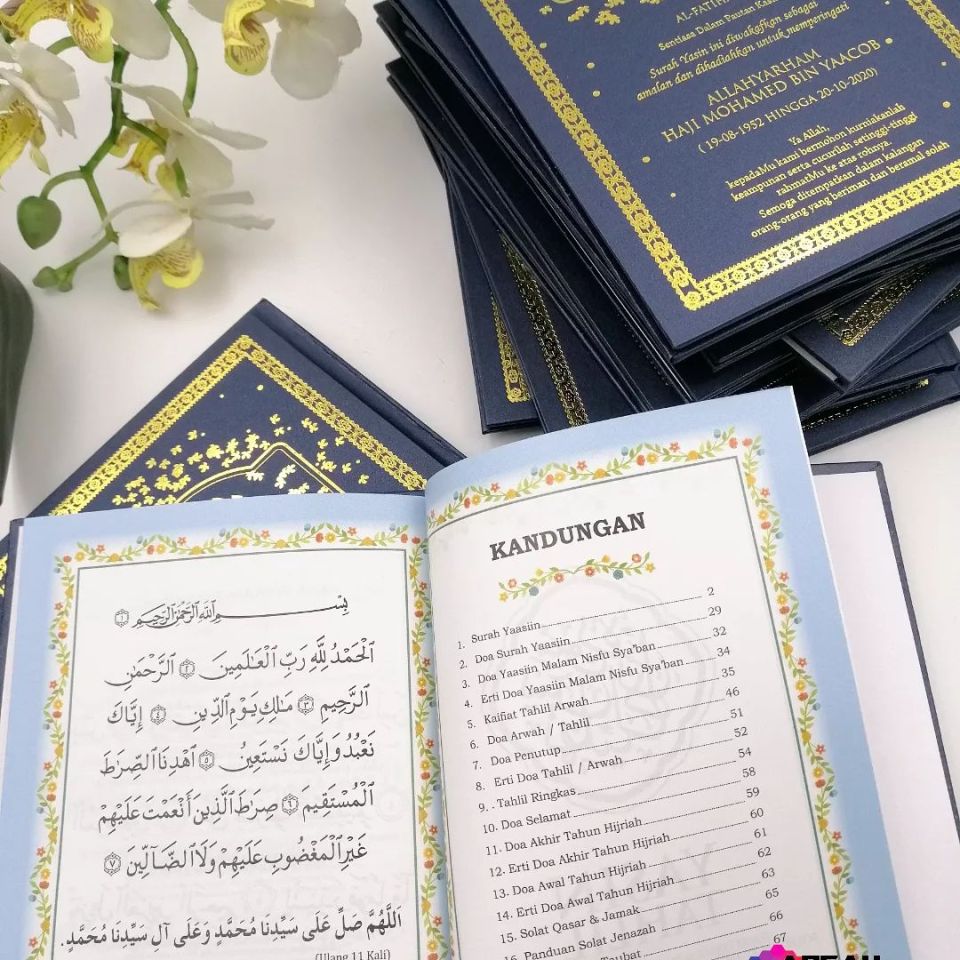 AL-FATIHAH
Sentiasa Dalam Pautan Kasih
Surah Yasin ini diwakafkan sebagai
amalan dan dihadiahkan untuk memperingati
ALLAHYARHAM
HAJI MOHAMED BIN YAACOB
( 19-08-1952 HINGGA 20-10-2020)
Ya Allah,
kepadaMu kami bermohon kurniakanlah
keampunan serta cucurilah setinggi-tinggi
rahmatMu ke atas rohnya.
Semoga ditempatkan dalam kalangan
orang-orang yang beriman dan beramal solah
بِسْمِ ٱللَّهِ ٱلرَّحْمَٰنِ ٱلرَّحِيمِ ١
ٱلْحَمْدُ لِلَّهِ رَبِّ ٱلْعَٰلَمِينَ ٢ ٱلرَّحْمَٰنِ
ٱلرَّحِيمِ ٣ مَٰلِكِ يَوْمِ ٱلدِّينِ ٤ إِيَّاكَ
نَعْبُدُ وَإِيَّاكَ نَسْتَعِينُ ٥ ٱهْدِنَا ٱلصِّرَٰطَ
ٱلْمُسْتَقِيمَ ٦ صِرَٰطَ ٱلَّذِينَ أَنْعَمْتَ عَلَيْهِمْ
غَيْرِ ٱلْمَغْضُوبِ عَلَيْهِمْ وَلَا ٱلضَّآلِّينَ ٧
اَللّٰهُمَّ صَلِّ عَلَى سَيِّدِنَا مُحَمَّدٍ وَعَلَى آلِ سَيِّدِنَا مُحَمَّدٍ.
(Ulang 11 Kali)
KANDUNGAN
1. Surah Yaasiin 2
2. Doa Surah Yaasiin 29
3. Doa Yaasiin Malam Nisfu Sya'ban 32
4. Erti Doa Yaasiin Malam Nisfu Sya'ban 34
5. Kaifiat Tahlil Arwah 35
6. Doa Arwah / Tahlil 46
7. Doa Penutup 51
8. Erti Doa Tahlil / Arwah 52
9. . Tahlil Ringkas 54
10. Doa Selamat 58
11. Doa Akhir Tahun Hijriah 59
12. Erti Doa Akhir Tahun Hijriah 60
13. Doa Awal Tahun Hijriah 61
14. Erti Doa Awal Tahun Hijriah 62
15. Solat Qasar & Jamak 63
16. Panduan Solat Jenazah 65
Taubat 66
67